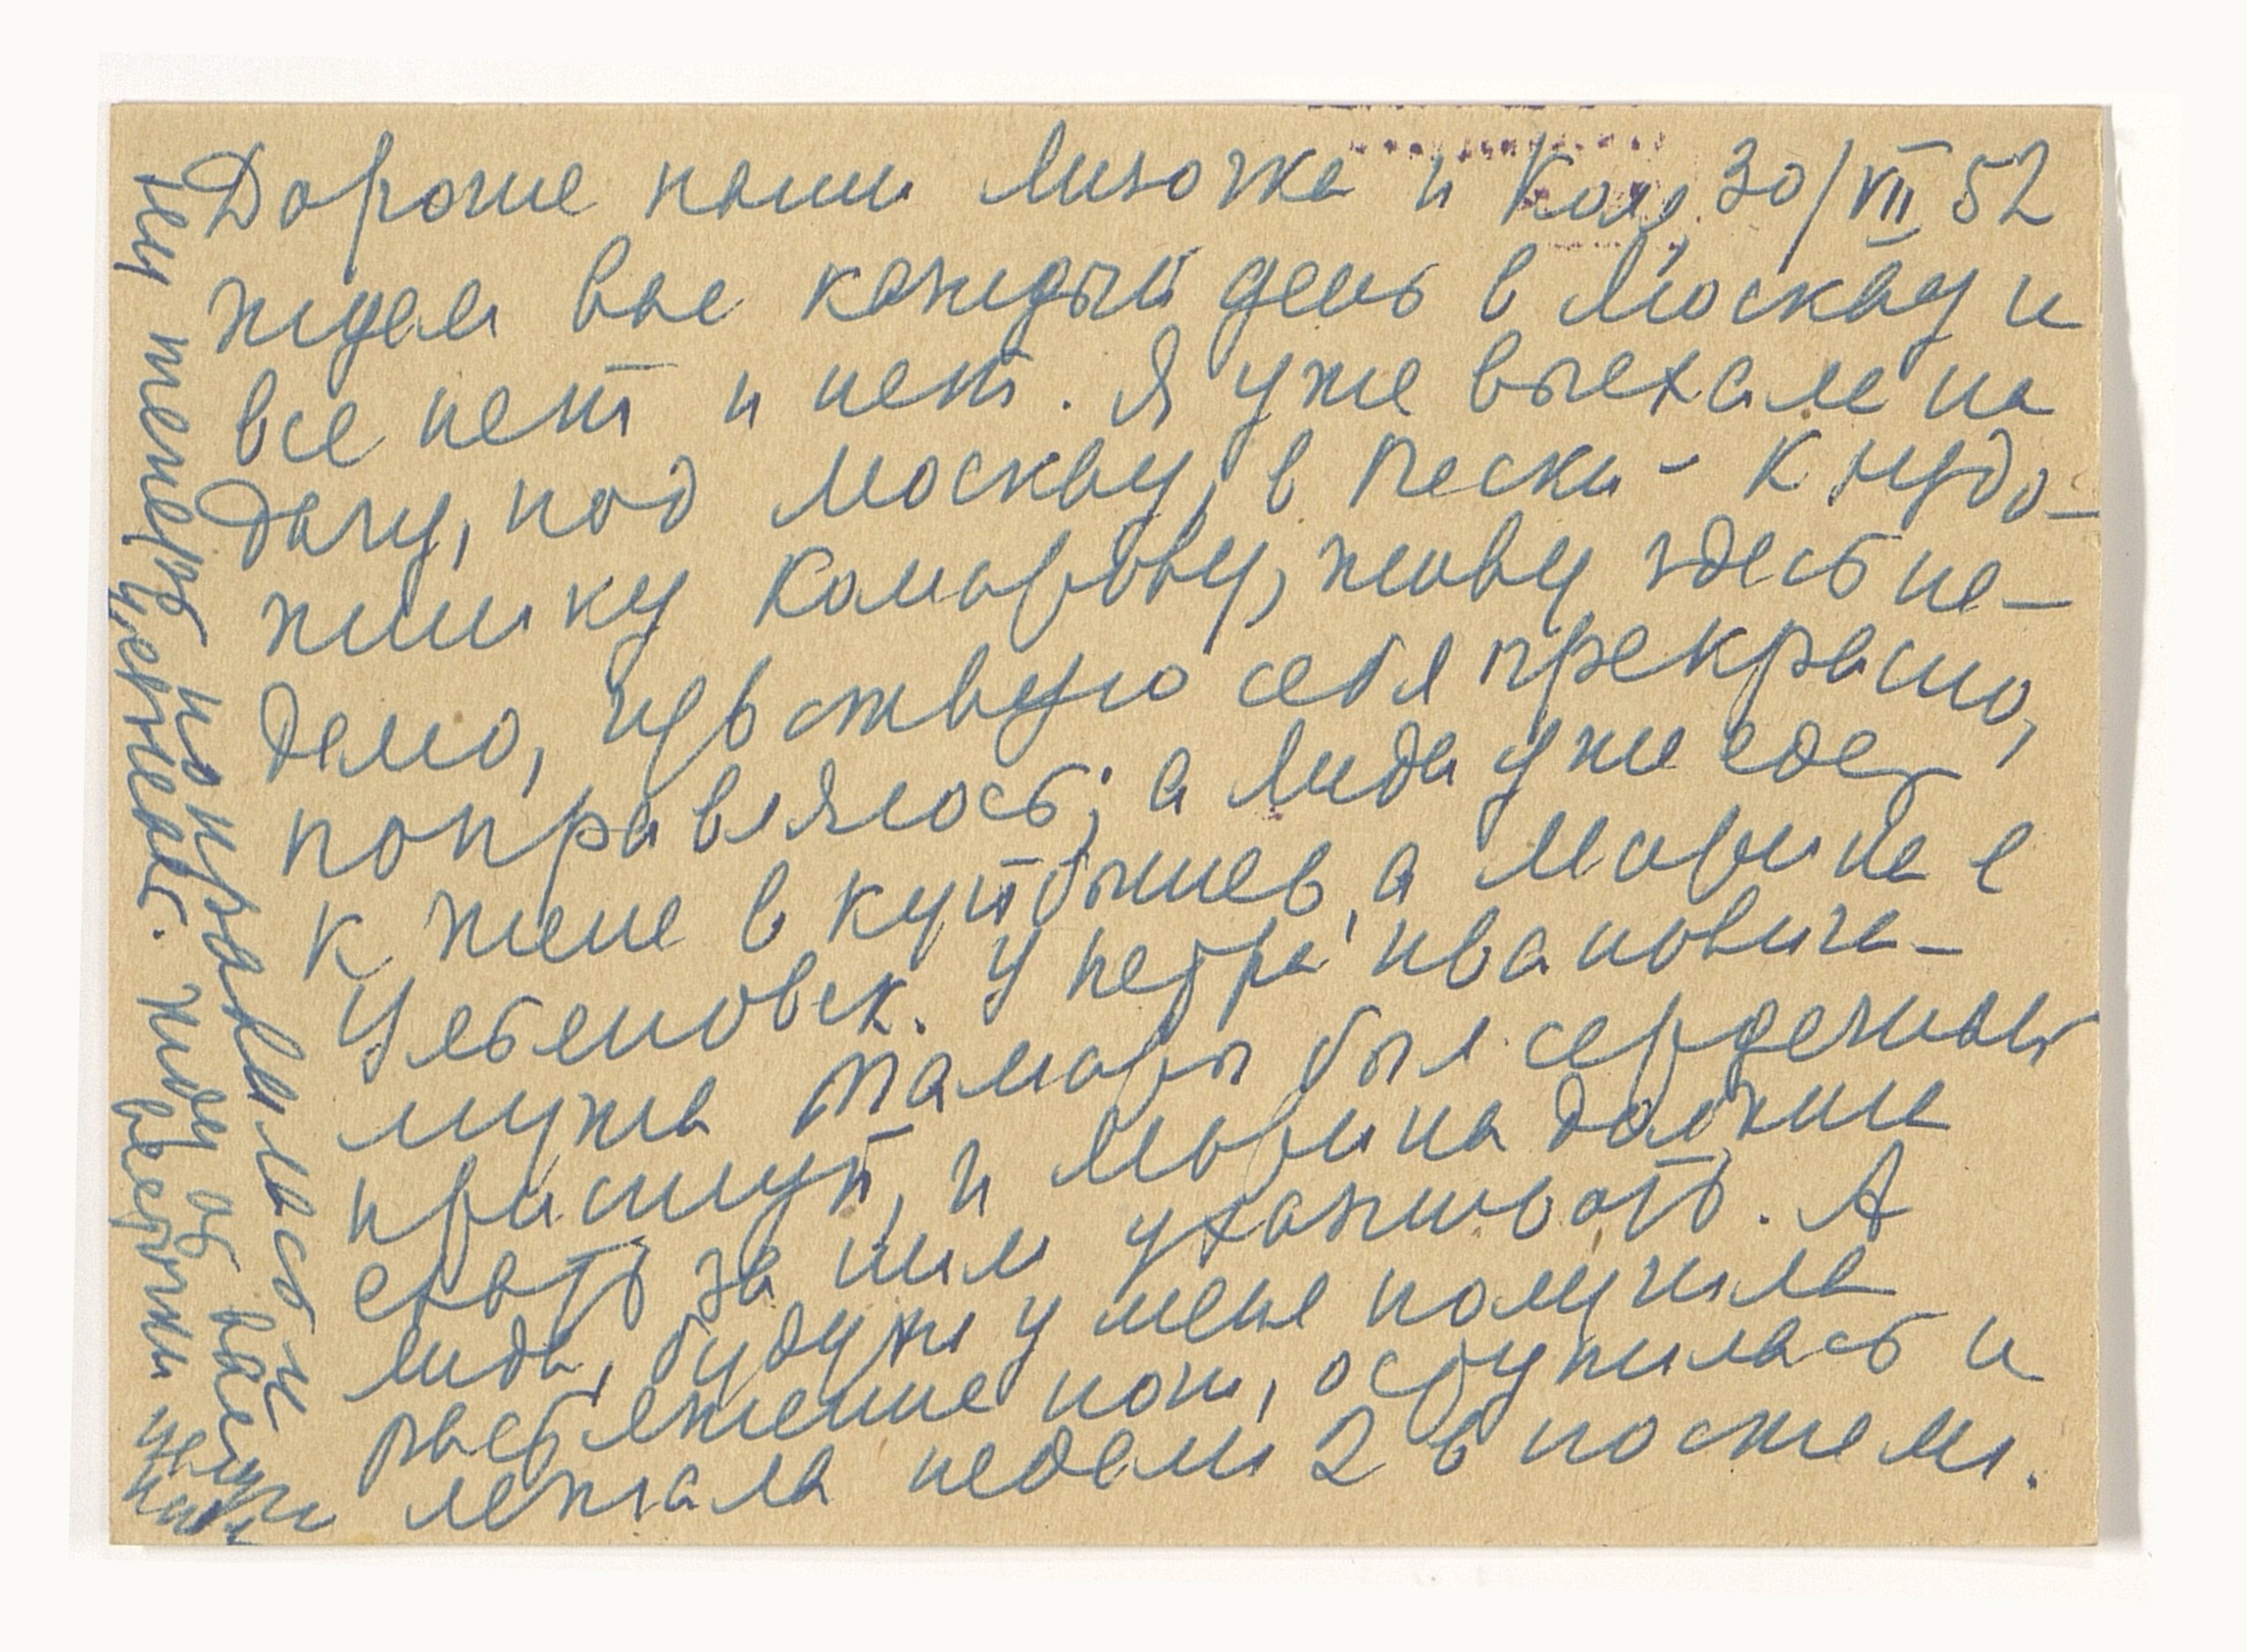 Дорогие наши Лизочка и Коля, 30/VII 52
ждем вас каждый день в Москву и
все нет и нет. Я уже выехала на
дачу, под Москву, в Пески - к худо-
жнику Комарову, живу здесь не-
делю, чувствую себя прекрасно,
поправляюсь, а Лида уже едет
к жене в Куйбышев, а Марина в
Ульяновск. У Петра Ивановича -
мужа Тамары был сердечный
приступ, и Марина должна
ехать за ним ухаживать. А
Лида, будучи у меня получила
растяжение ноги, оступилась и
лежала недели 2 в постели.
теперь поправилась и
уезжает. Жду от вас
весточки